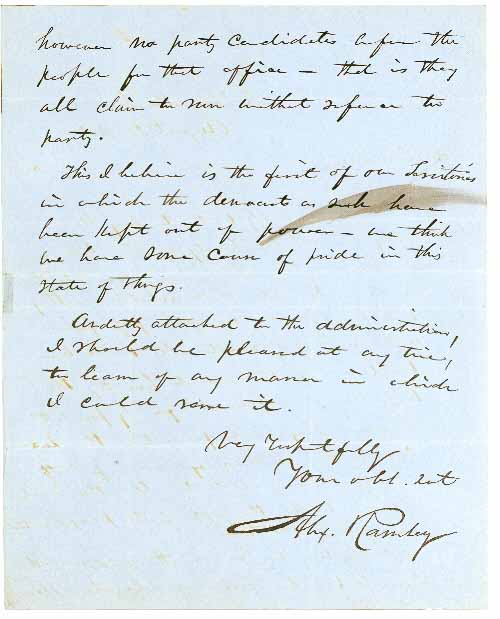 however no party candidates before the
people for that office – that is they
all claim to run without reference to
party.
This I believe is the first of our Territories
in which the democrats as such have
been kept out of power – we think
we have some cause of pride in this
state of things.
Ardently attached to the administration,
I should be pleased at any time,
to learn of any manner in which
I could serve it.
Very respectfully
Your obt. svt
Alex. Ramsey